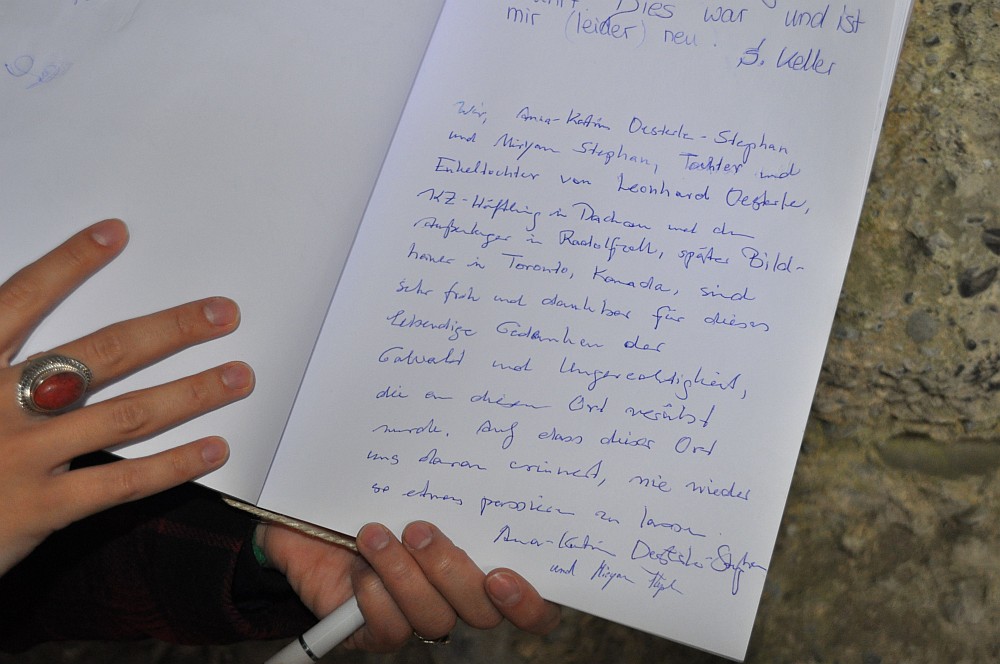 Dies war und ist
mir (leider) neu!
S. Keller
Wir, Anna-Katrin Oesterle-Stephan
und Mirjam Stephan, Tochter und
Enkeltochter von Leonhard Oesterle,
KZ-Häftling in Dachau und dem
Außenlager in Radolfzell, später Bild-
hauer in Toronto, Kanada, sind
sehr froh und dankbar für dieses
lebendige Gedenken der
Gewalt und Ungerechtigkeit,
die an diesem Ort verübt
wurde. Auf dass dieser Ort
uns daran erinnert, nie wieder
so etwas passieren zu lassen.
Anna-Katrin Oesterle-Stephan
und Mirjam Stephan